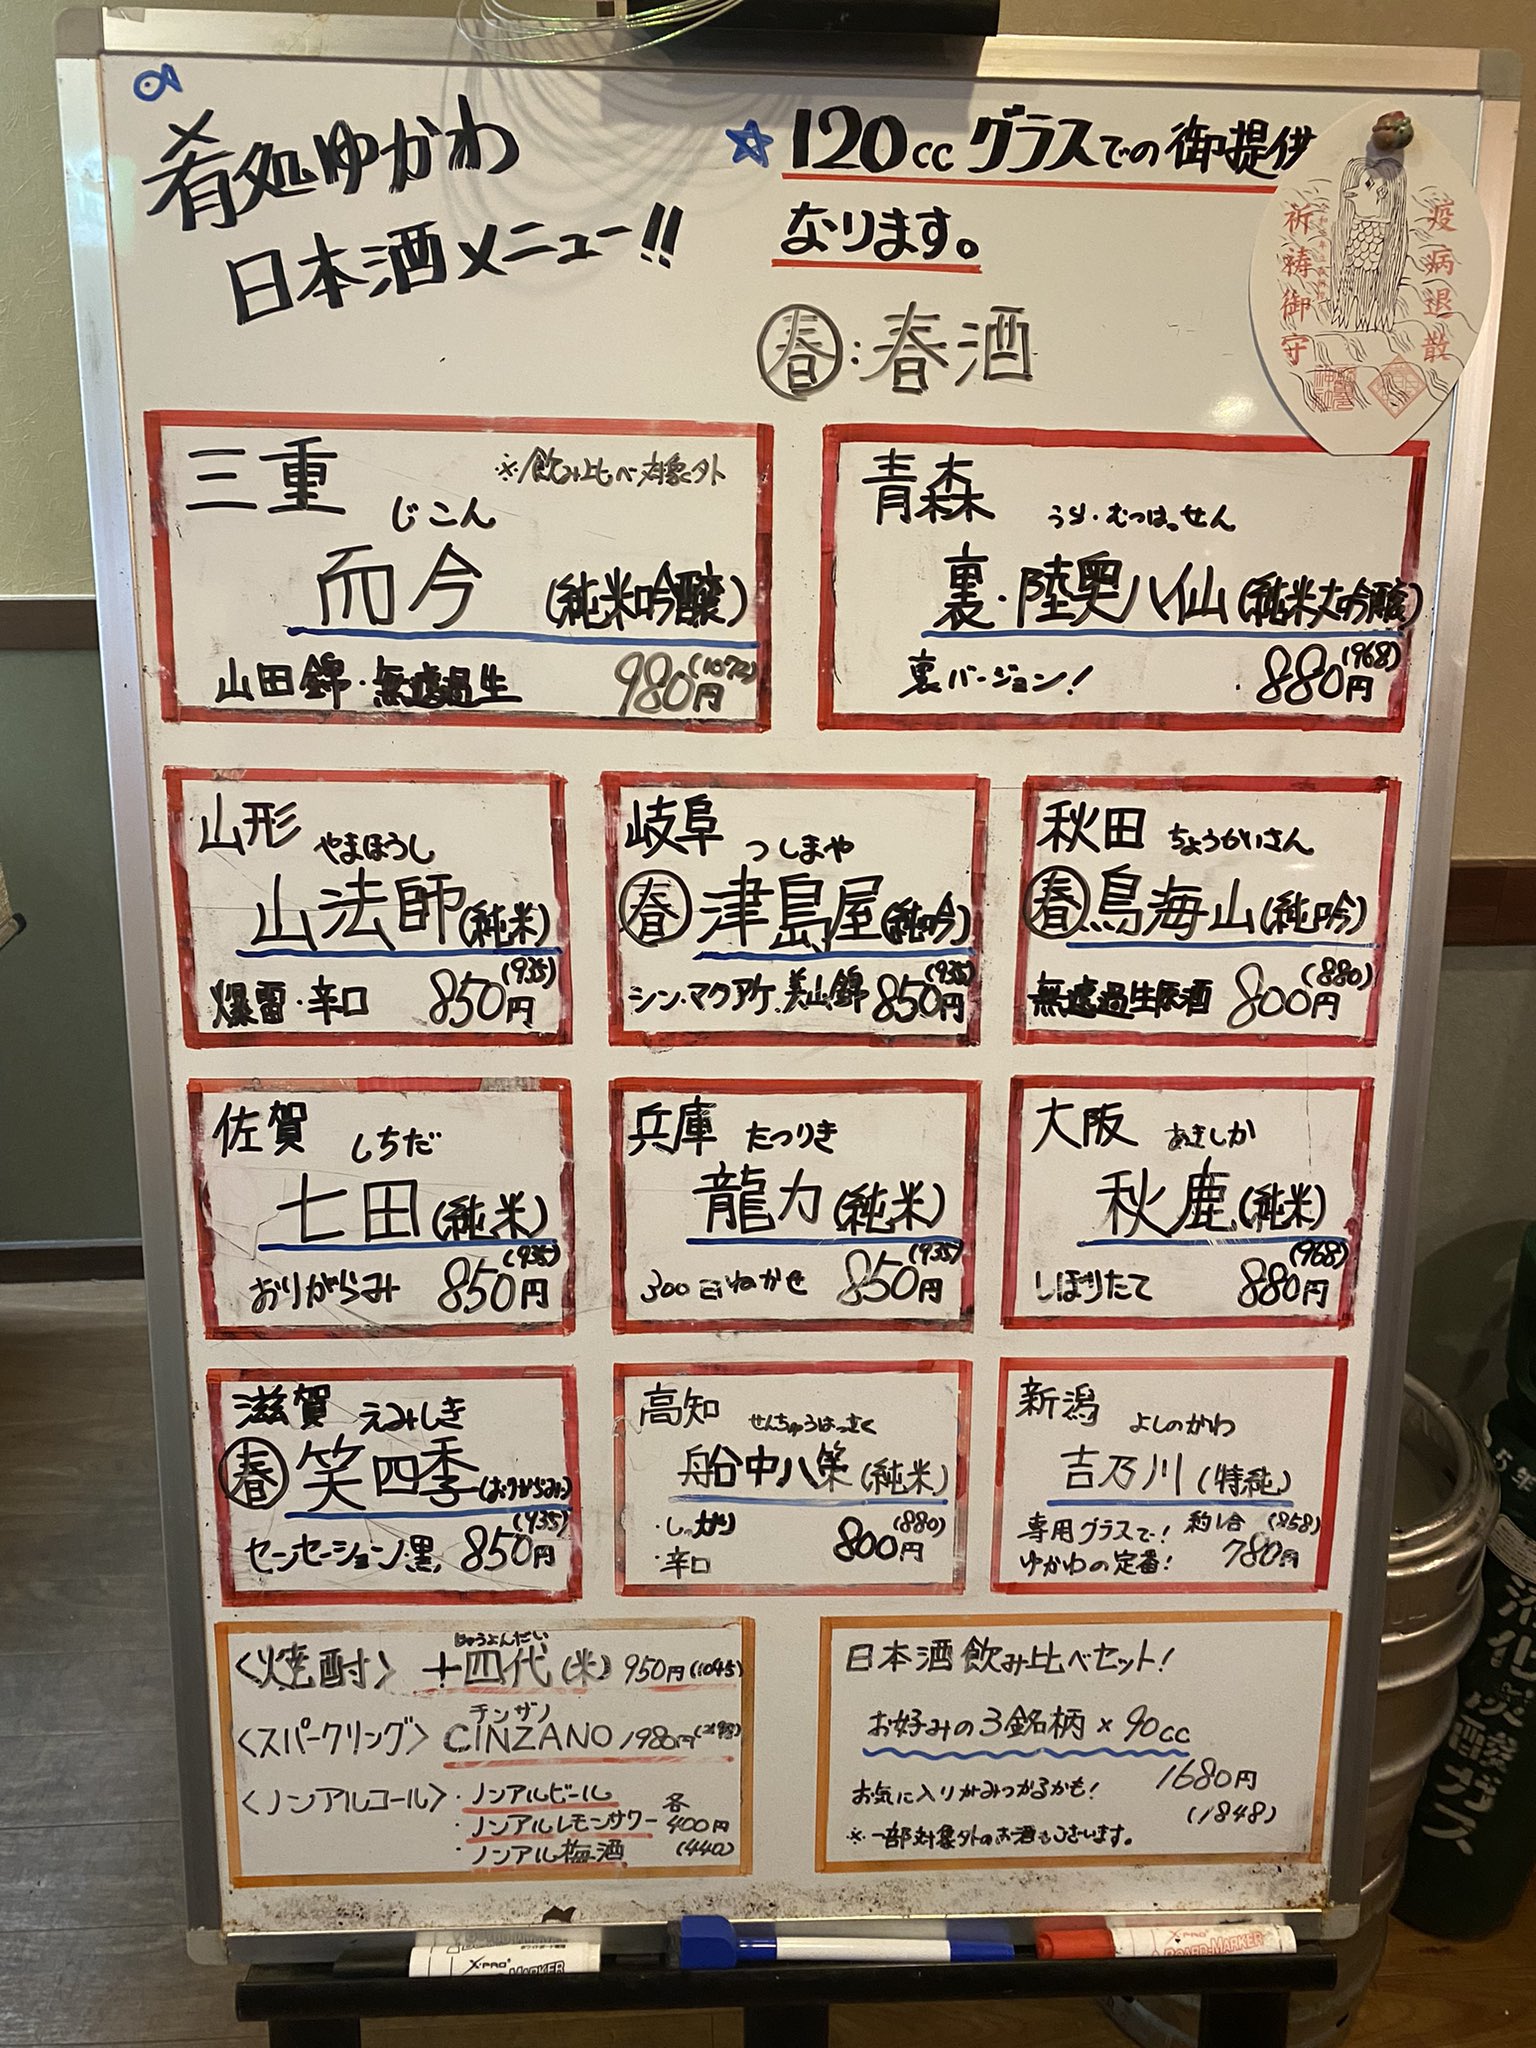 肴処ゆかわ
日本酒メニュー!!
☆120ccグラスでの御提供
なります。
春:春酒
疫病退散
祈祷御守
三重 ※飲み比べ対象外
じこん
而今 (純米吟醸)
山田錦・無濾過生 980円(1072)
青森 うら・むつはっせん
裏・陸奥八仙(純米大吟醸)
裏バージョン! 880円(968)
山形 やまほうし
山法師(純米)
爆雷・辛口 850円(935)
岐阜 つしまや
春 津島屋(純吟)
シン・マクアケ.美山錦 850円(935)
秋田 ちょうかいさん
春 鳥海山(純吟)
無濾過生原酒 800円(880)
佐賀 しちだ
七田(純米)
おりがらみ 850円(935)
兵庫 たつりき
龍力(純米)
300日ねかせ 850円(935)
大阪 あきしか
秋鹿(純米)
しぼりたて 880円(968)
滋賀 えみしき
春 笑四季(おりがらみ)
センセーション黒 850円(935)
高知 せんちゅうはっさく
船中八策(純米)
・しっかり
・辛口 800円(880)
新潟 よしのがわ
吉乃川(特純)
専用グラスで! 約1合 (858)
ゆかわの定番! 780円
じゅうよんだい
<焼酎> 十四代(米) 950円(1045)
チンザノ
<スパークリング> CINZANO 1980円
<ノンアルコール> ・ノンアルビール 各
・ノンアルレモンサワー 400円
・ノンアル梅酒 (440)
日本酒飲み比べセット!
お好みの3銘柄×90cc
1680円
お気に入りがみつかるかも! (1848)
※一部対象外のお酒もございます。
X-PRO
BOARD-MARKER
X-PRO
BOARD-MARKER
液化炭酸ガス